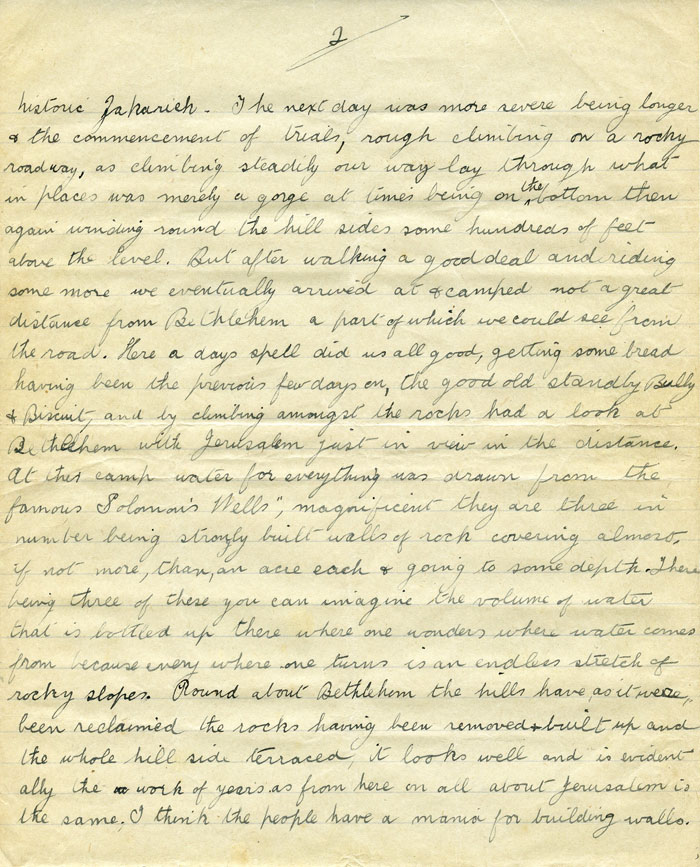 2
historic Zakarieh. The next day was more severe being longer
& the commencement of trials, rough climbing on a rocky
roadway, as climbing steadily our way lay through what
in places was merely a gorge at times being on the bottom then
again winding round the hill sides some hundreds of feet
above the level. But after walking a good deal and riding
some more we eventually arrived at & camped not a great
distance from Bethlehem a part of which we could see from
the road. Here a days spell did us all good, getting some bread
having been the previous few days on, the good old standby Bully
& Biscuit, and by climbing amongst the rocks had a look at
Bethlehem with Jerusalem just in view in the distance.
At this camp water for everything was drawn from the
famous "Solomon's Wells", magnificent they are three in
number being strongly built walls of rock covering almost,
if not more, than, an acre each & going to some depth. There
being three of these you can imagine the volume of water
that is bottled up there where one wonders where water comes
from because every where one turns is an endless stretch of
rocky slopes. Round about Bethlehem the hills have, as it were,
been reclaimed the rocks having been removed & built up and
the whole hill side terraced, it looks well and is evident
ally the work of years as from here on all about Jerusalem is
the same. I think the people have a mania for building walls.